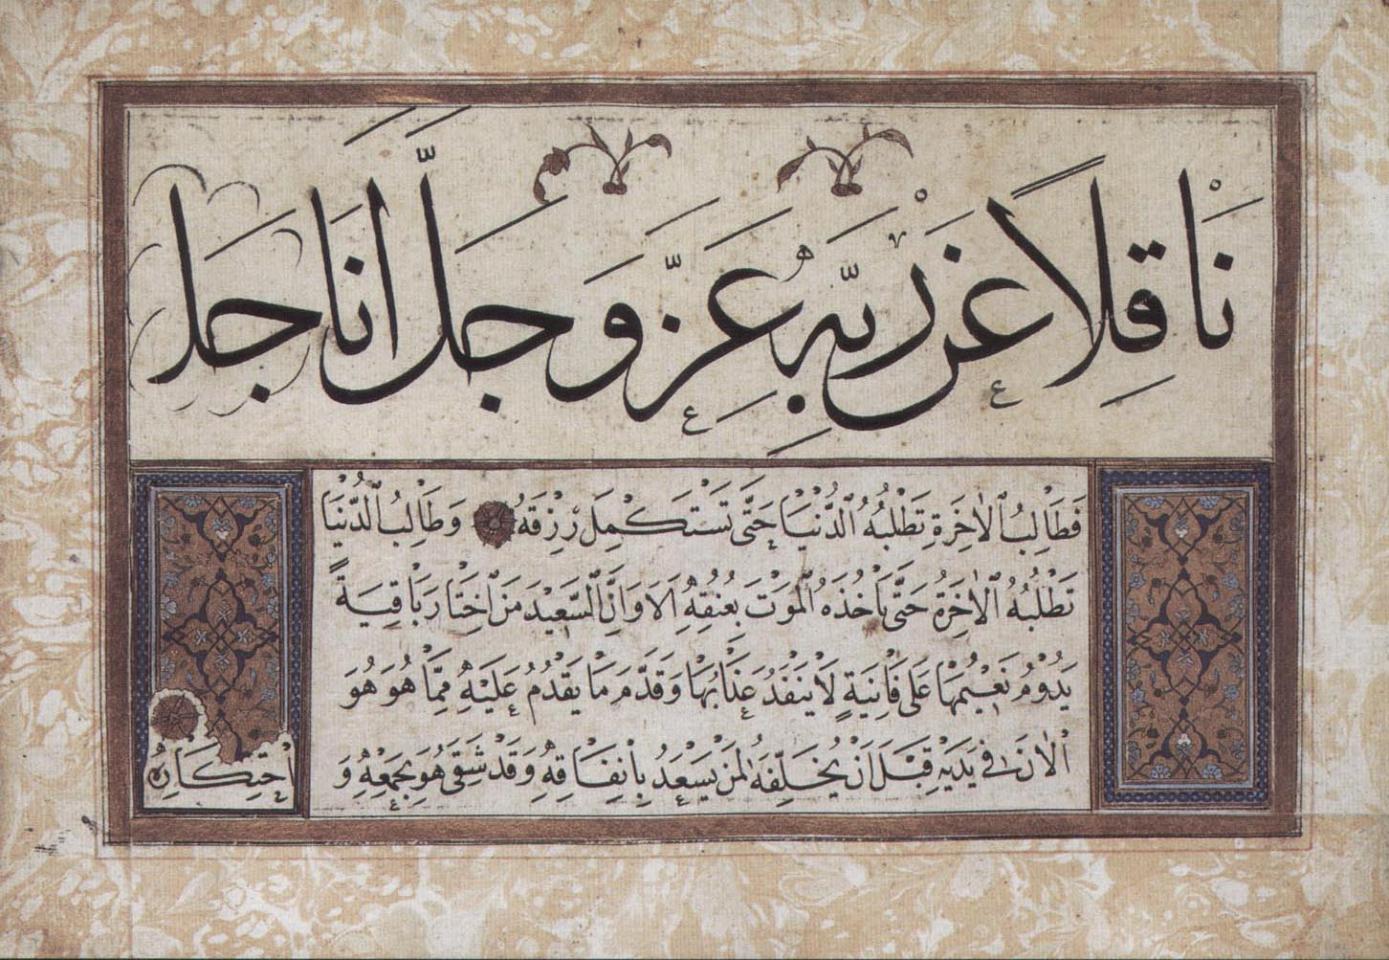 نَاقِلًا عَنْ رَبِّهِ عَزَّ وَجَلَّ اَنَا جَل
فَطَالِبُ الْاٰخِرَةِ تَطْلُبُهُ الدُّنْيَا حَتّٰى تَسْتَكْمِلَ رِزْقَهُ وَطَالِبُ الدُّنْيَا
تَطْلُبُهُ الْاٰخِرَةُ حَتّٰى يَاْخُذَهُ الْمَوْتُ بِعُنُقِهِ اَلَا وَاِنَّ السَّعِيْدَ مَنْ اخْتَارَ بَاقِيَةً
يَدُوْمُ نَعِيْمُهَا عَلٰى فَانِيَةٍ لَا يَنْفَدُ عَذَابُهَا وَقَدَّمَ مَا يَقْدُمُ عَلَيْهِ مِمَّا هُوَ هُوَ
الْاٰنَ فِى يَدَيْهِ قَبْلَ اَنْ يُخَلِّفَهُ لِمَنْ يَسْعَدُ بِاِنْفَاقِهِ وَقَدْ شَقِىَ هُوَ بِجَمْعِهِ وَ
اِحْتِكَارِهِ